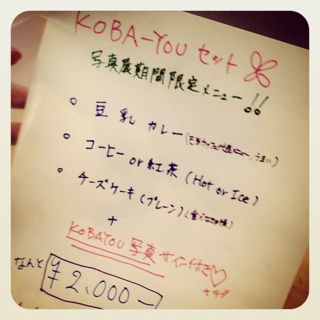 KOBA-YOU セット
写真展期間限定メニュー!!
豆乳カレー
コーヒー or 紅茶 (Hot or Ice)
チーズケーキ (プレーン)
+
KOBAYOU 写真 サイン付き♡
なんと ¥2,000-